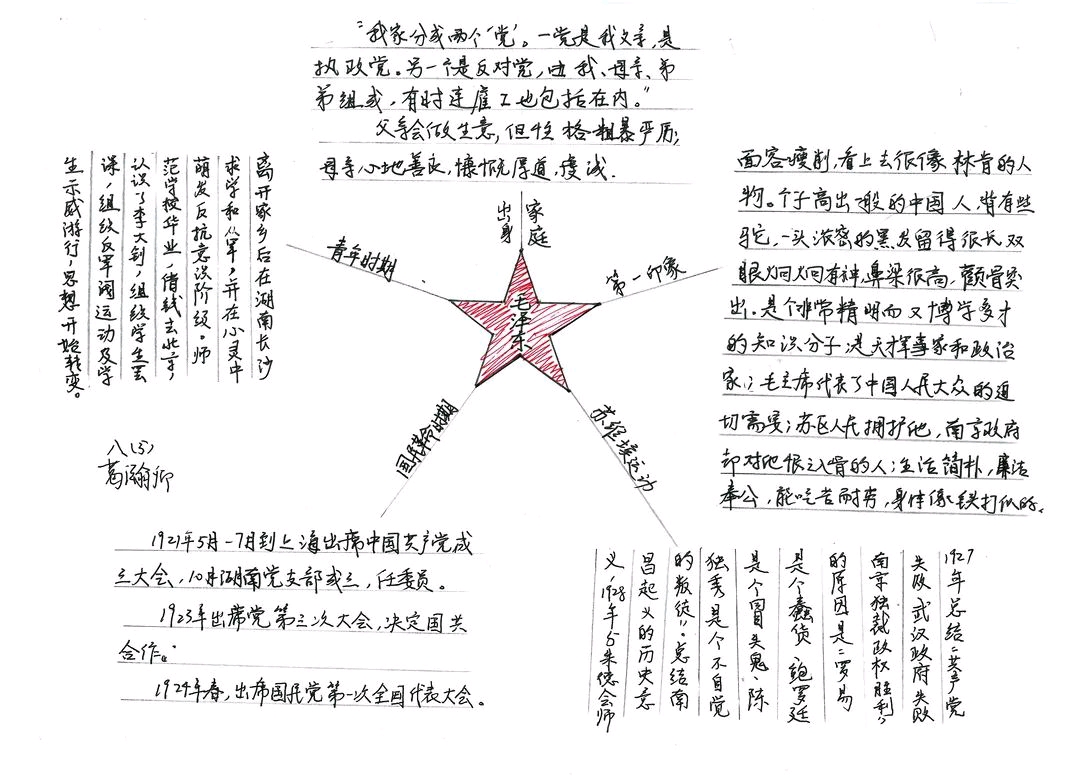 “我家分成两个‘党’。一党是我父亲,是
执政党。另一个是反对党,由我、母亲、弟
弟组成,有时连雇工也包括在内。”
父亲会做生意,但性格粗暴严厉;
母亲心地善良,慷慨厚道,虔诚.
家庭
出身
毛泽东
第一印象
面容瘦削,看上去很像林肯的人
物。个子高出一般的中国人,背有些
驼,一头浓密的黑发留得很长,双
眼炯炯有神,鼻梁很高,颧骨突
出.是个非常精明而又博学多才
的知识分子;是天挥事家和政治
家;毛主席代表了中国人民大众的迫
切需要;苏区人民拥护他,南京政府
却对他恨之入骨的人;生活简朴,廉洁
奉公,能吃苦耐劳,身体像铁打似的。
苏维埃运动
1927年总结:“共产党
失败武汉政府失败
南京独裁政权胜利”
的原因是:“罗易
是个蠢货、鲍罗廷
是个冒失鬼、陈
独秀是个不自觉
的叛徒”。总结南
昌起义的历史意
义,1928年与朱德会师
国民革命时期
1921年5月-7月到上海出席中国共产党成
立大会,10月湖南党支部成立,任委员。
1923年出席党第三次大会,决定国共
合作。
1924年春,出席国民党第一次全国代表大会。
青年时期
离开家乡后在湖南长沙
求学和从军,并在心灵中
萌发反抗意识阶级。师
范学校毕业,借钱去北京,
认识了李大钊,组织学生罢
课,组织反军阀运动及学
生示威游行,思想开始转变。
八(5)
葛瀚卿